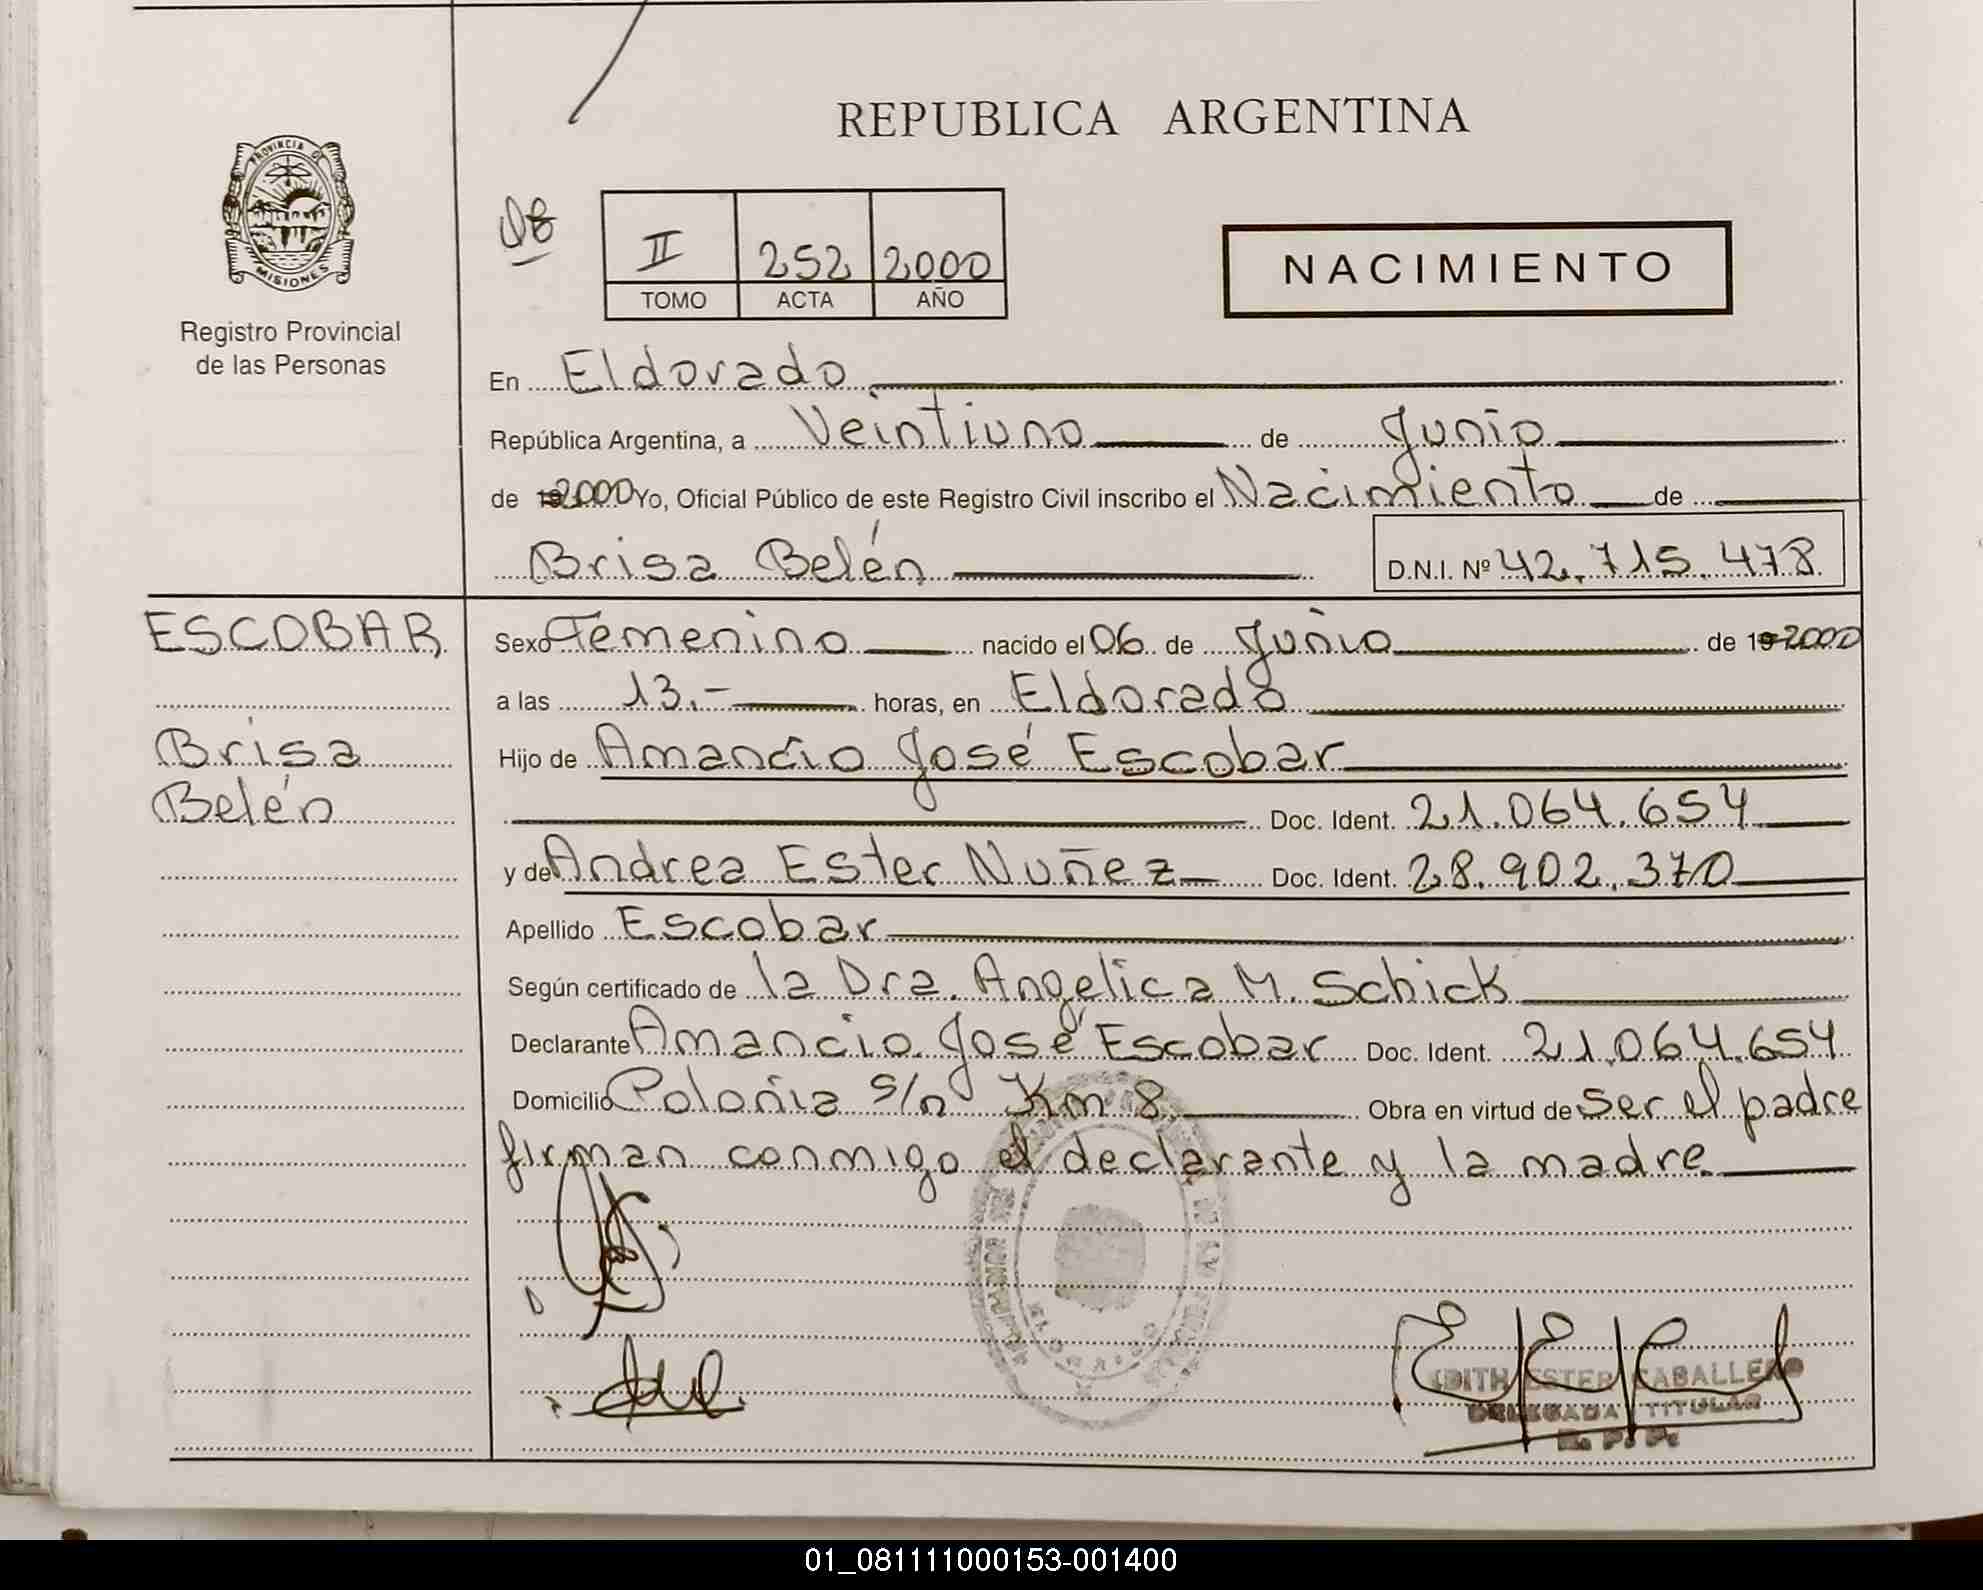 REPUBLICA ARGENTINA
PROVINCIA DE
MISIONES
Registro Provincial
de las Personas
II 252 2000
TOMO ACTA AÑO
NACIMIENTO
En Eldorado
República Argentina, a Veintiuno de Junio
de 2000 Yo, Oficial Público de este Registro Civil inscribo el Nacimiento de
Brisa Belén D.N.I. Nº 42.715.478
ESCOBAR
Brisa
Belén
Sexo Femenino nacido el 06 de Junio de 19 2000
a las 13.- horas, en Eldorado
Hijo de Amancio José Escobar
Doc. Ident. 21.064.654
y de Andrea Ester Nuñez Doc. Ident. 28.902.370
Apellido Escobar
Según certificado de la Dra. Angelica M. Schick
Declarante Amancio José Escobar Doc. Ident. 21.064.654
Domicilio Colonia s/n Km 8 Obra en virtud de ser el padre
firman conmigo el declarante y la madre
EDITH ESTER CABALLERO
DELEGADA TITULAR
R. P. P.
01_081111000153-001400